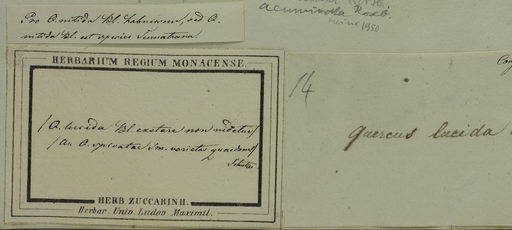 Pro Q. nitida Bl. habueram, sed Q.
nitida Bl. est species Sumatrana.
acuminata Roxb.
1950
HERBARIUM REGIUM MONACENSE.
/Q. lucida Bl. exstare non videtur/
/An Q. spicatae Sm. varietas quaedam/
HERB. ZUCCARINII.
Herbar. Univ. Ludov. Maximil.
14
Quercus lucida